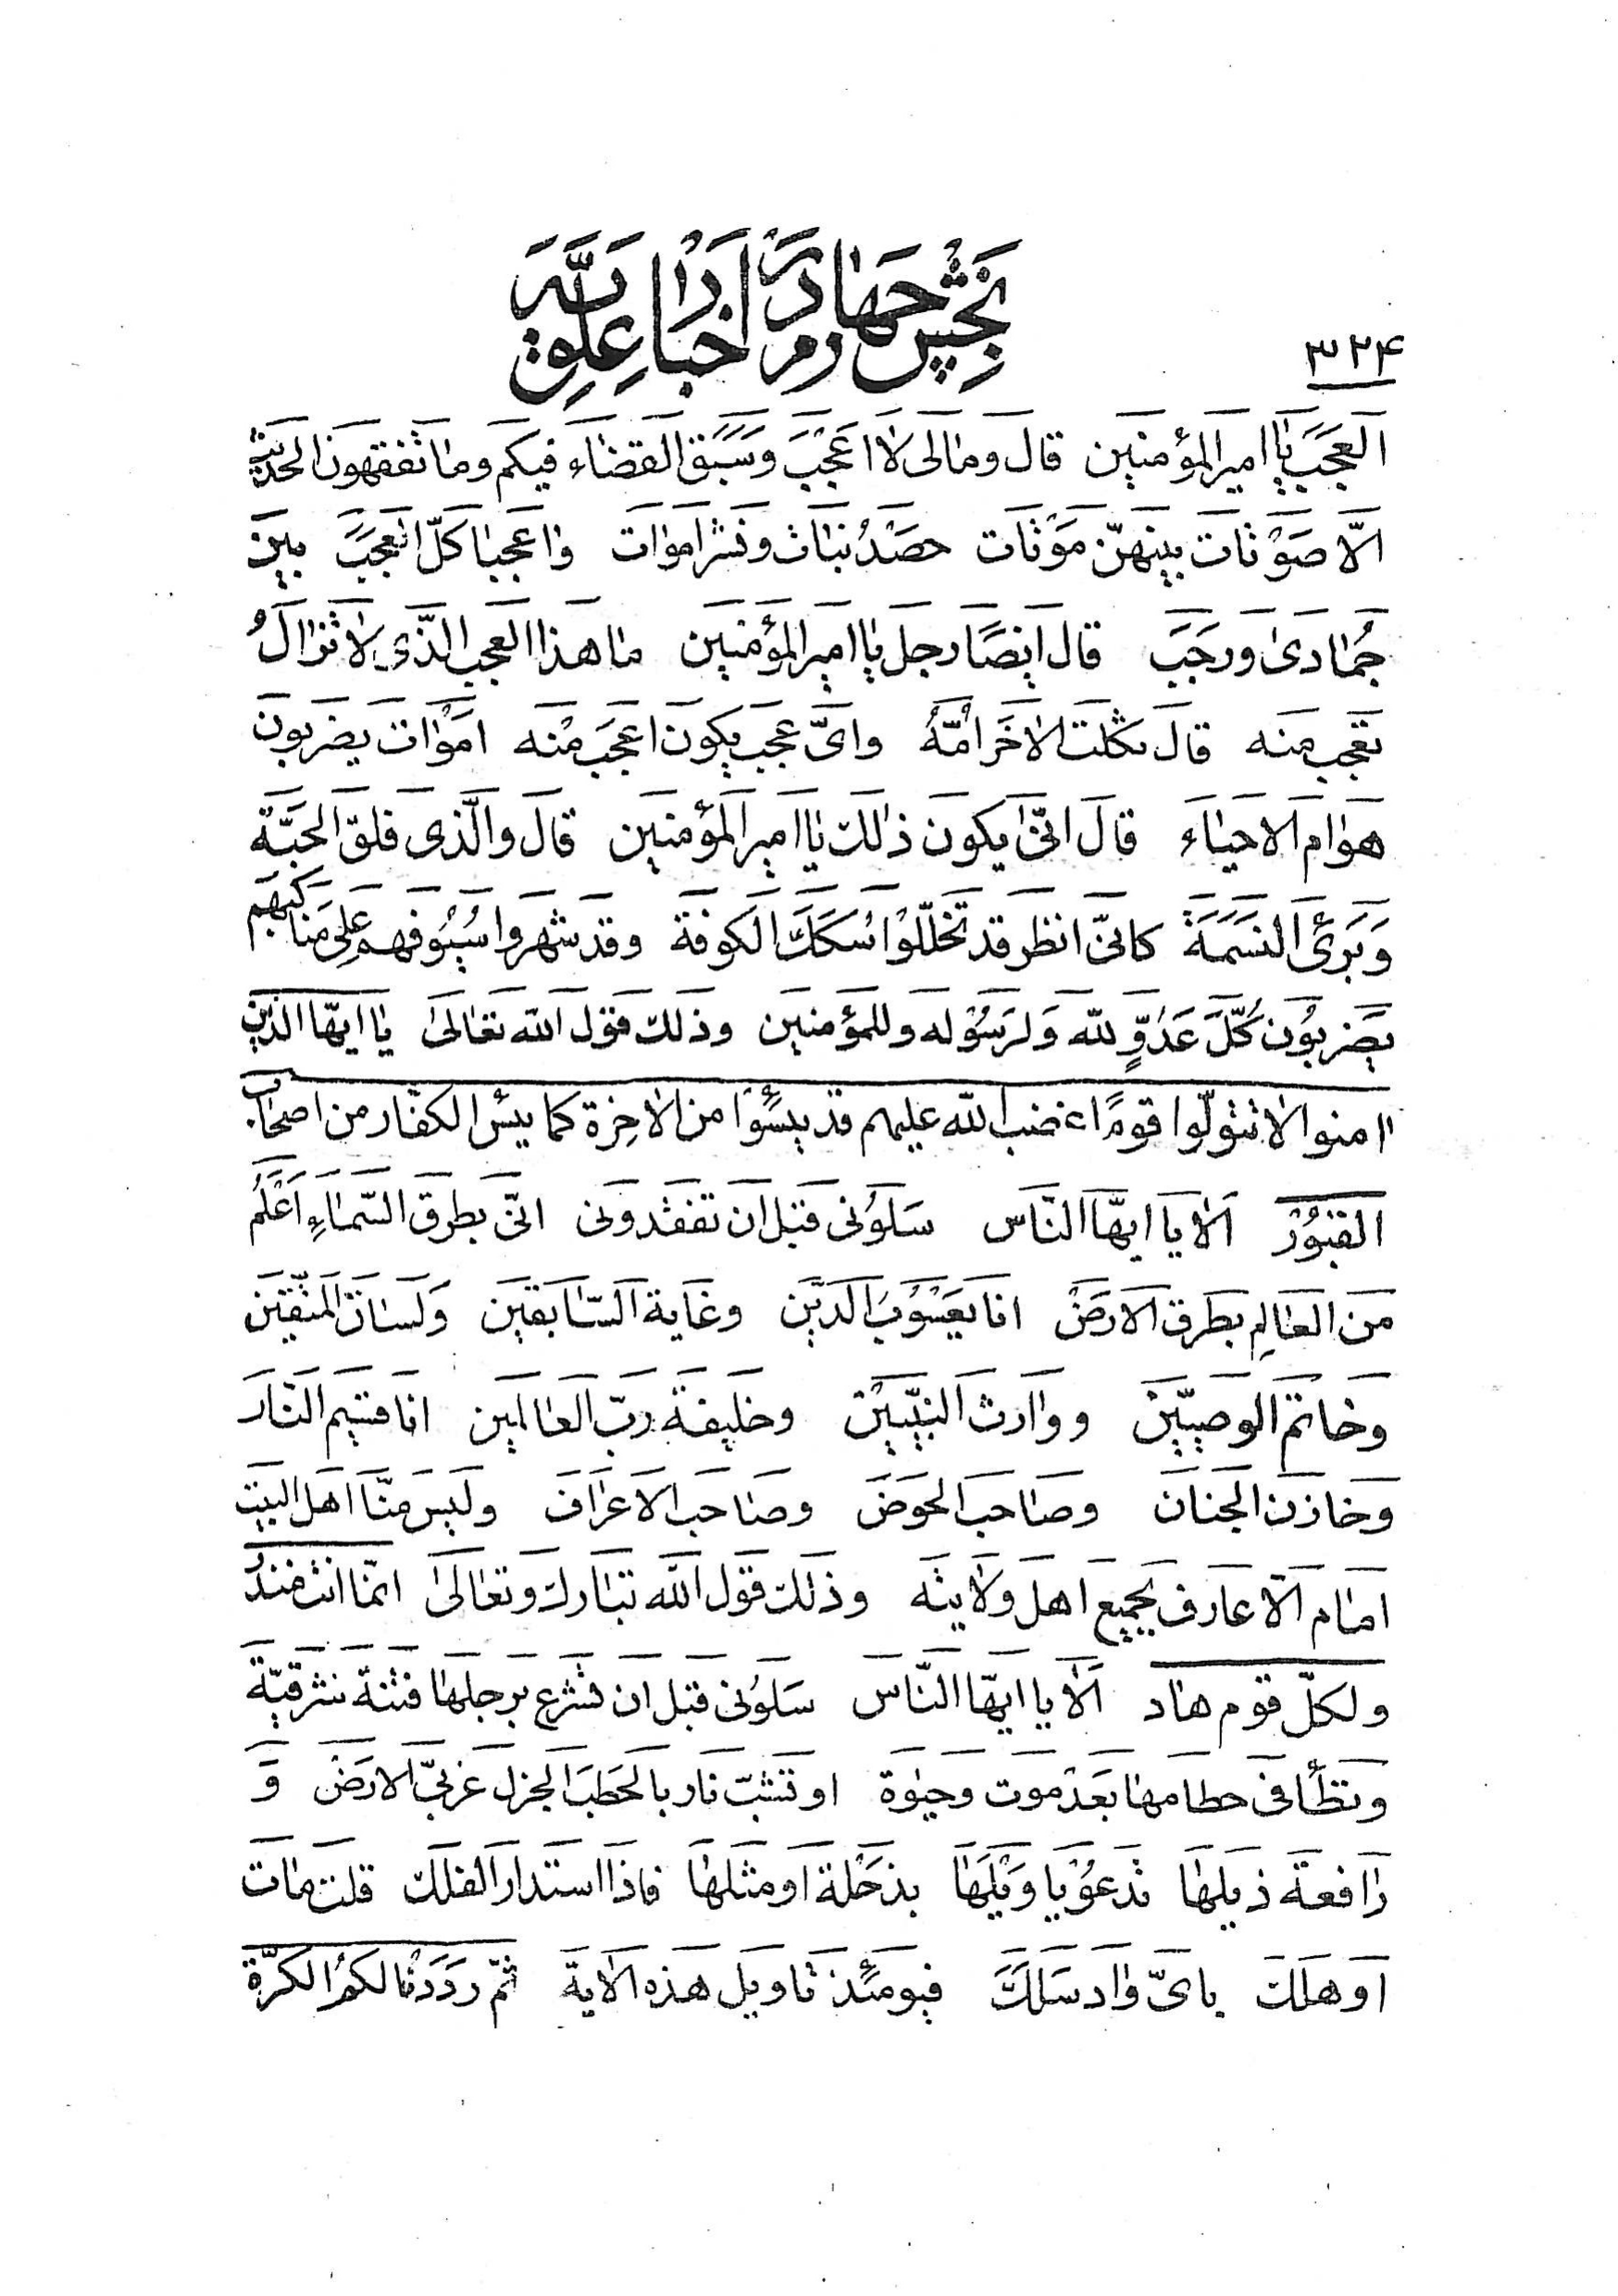 بخش چهارم در اخبار علویه
۳۲۴
العَجَبَ یا امیر المؤمنین قال وما لی لا اعجَبَ وسَبَق القضاء فیکم وما تفقهون الحدیث
الّا صَوْتات بینهنّ مَوْتات حصدُ نبات ونشر اموات واعجبا کلّ العجَبَ بین
جُمادی ورجَبَ قال ایضًا رجل یا امیر المؤمنین ما هذا العجب الّذی لا تزالُ
تعجب منه قال ثکلت الاخر امّهُ وایّ عجب یکون اعجَبَ منه امْوات یضربون
هوام الاحیاء قال انّی یکون ذالک یا امیر المؤمنین قال والّذی فلق الحبّة
وَبَرئ النسَمَة کانّی انظر قد تخلّلوْا سُکَکَ الکوفة وقد شهروا سُیُوفهم علی مناکبهم
یضربُون کُلَّ عَدُوٍّ لله وَلرسُوله وللمؤمنین وذلک قول الله تعالی یا ایّها الذین
امنوا لا تتولّوا قومًا غضب الله علیهم قد یئسُوْا من الاخِرة کما یئس الکفّار من اصحاب
القبُوْر اَلا یا ایّها النّاس سَلوُنی قبل ان تفقدونی انّی بطرق السّماءِ اَعْلَمُ
من العالِم بطرق الارض انا یعسُوُبُ الدّین وغایة السّابقین وَلسان المتّقین
وخاتم الوصیّین ووارث النبّیین وخلیفة ربّ العالمین انا قسیم النّار
وخازن الجنان وصاحب الحوض وصاحب الاعراف ولیس منّا اهل البیت
امام الّا عارف بجمیع اهل ولایته وذلک قول الله تبارک وتعالی انمّا انت منذرُ
ولکلّ قوم هاد اَلا یا ایّها النّاس سَلوُنی قبل ان تشرع برجلها فتنة شرقیّة
وتطأ فی حطامها بعد موت وحیوة او تشبّ نار بالحَطبَ الجزل غربیّ الارض وَ
رافعة ذیلها تدعُوْ یا وَیْلَها بذحْلة او مثلها فاذا استدار الفلک قلت مات
او هلک بایّ واد سلک فیومئذ تاویل هذه الایة ثمّ ردَدْنا لکمُ الکرّة